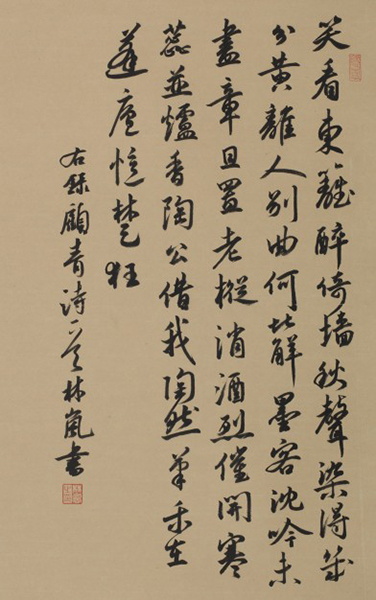 笑看東籬醉倚墻秋聲染得幾
分黃離人別曲何堪解墨客沈吟未
盡章且置老樅消酒烈催開寒
蕊並爐香陶公借我陶然筆禾在
蓬廬憶楚狂
右錄顧青詩一首林嵐書